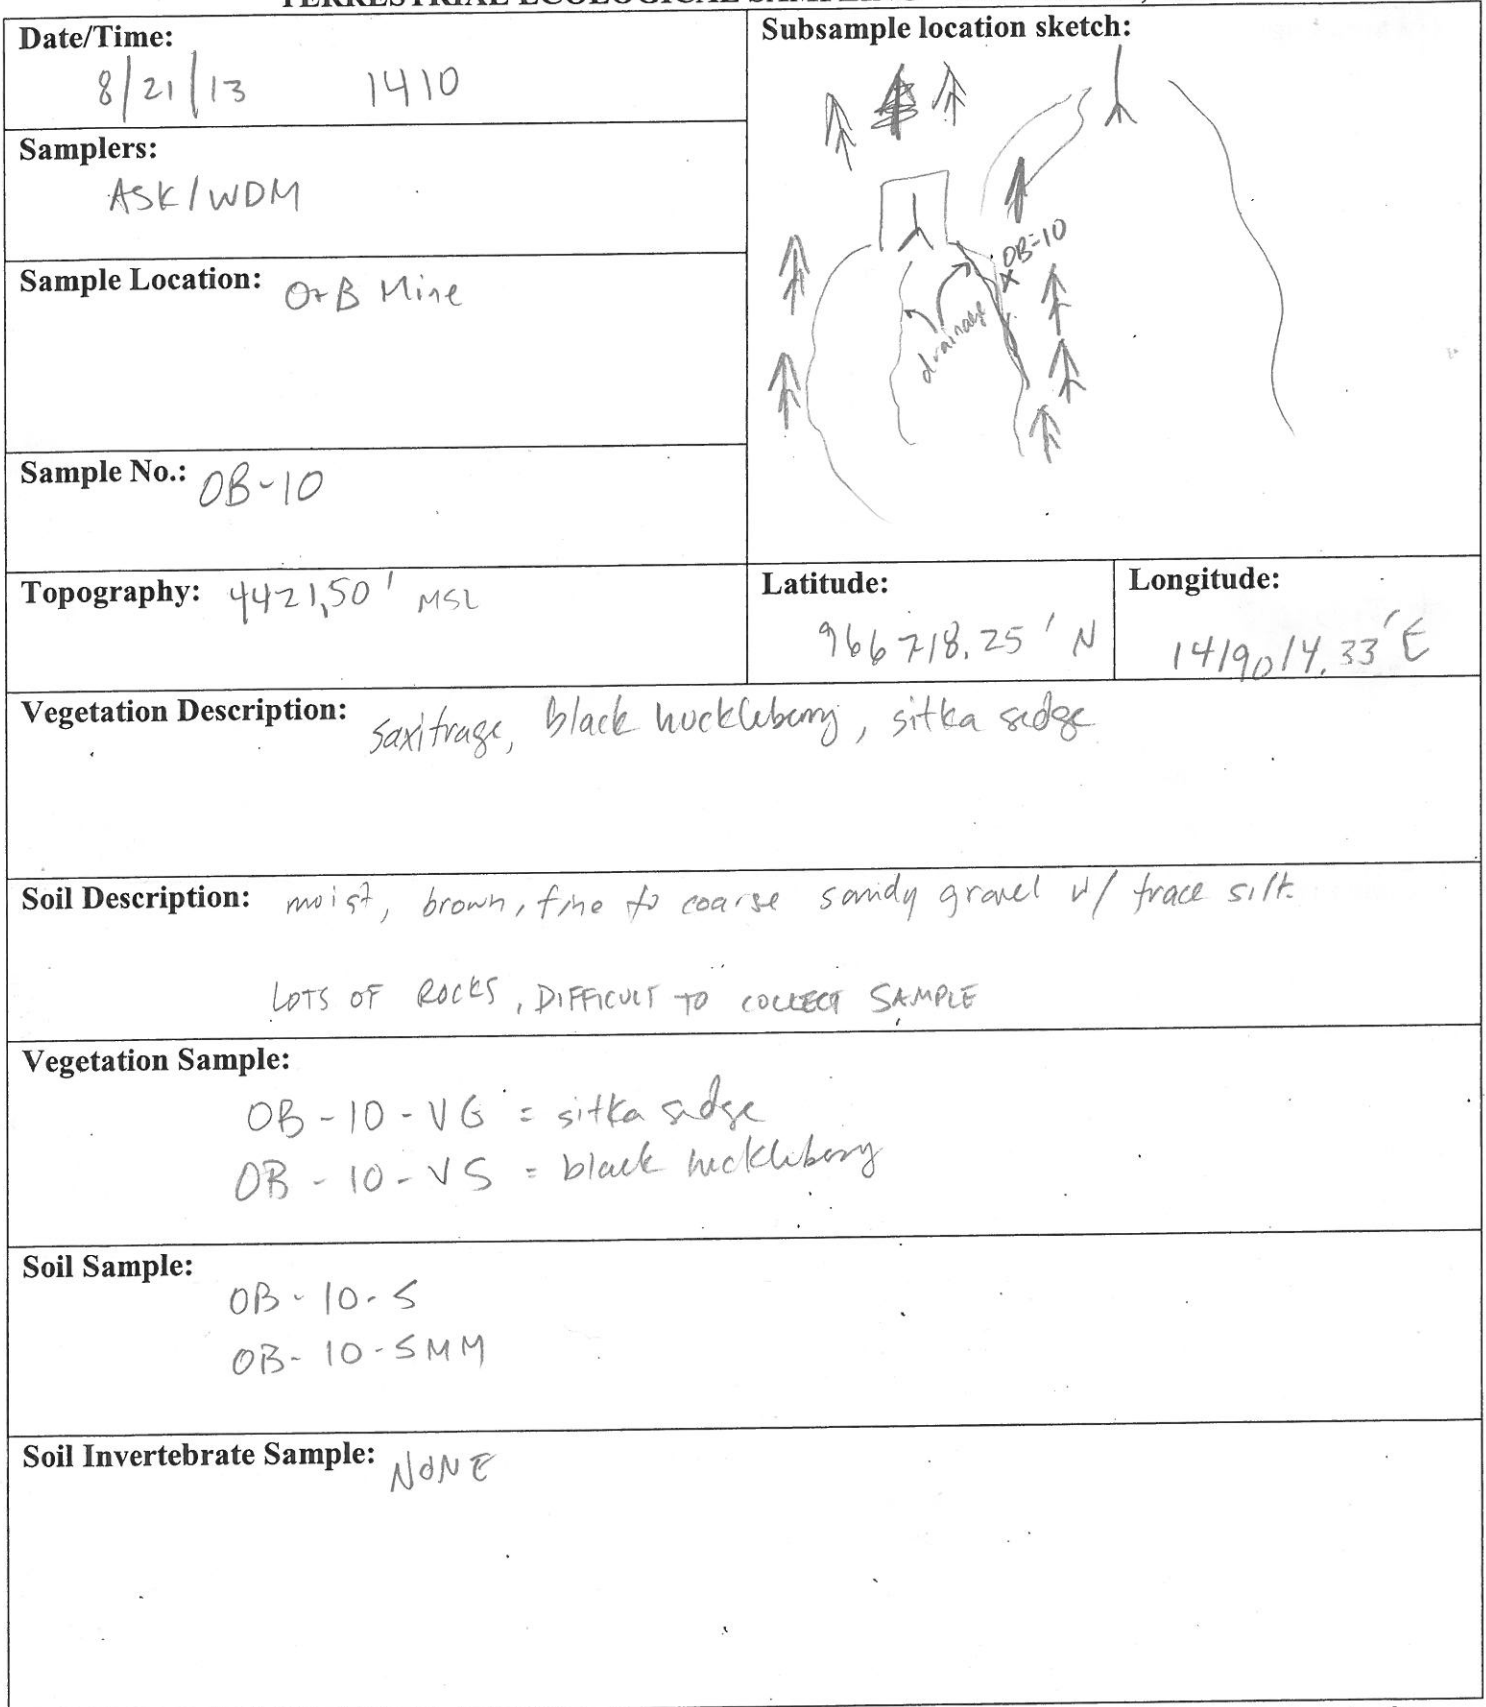 TERRESTRIAL ECOLOGICAL SAMPLING
Date/Time:
8/21/13 1410
Samplers:
ASK/WDM
Sample Location: O+B Mine
Sample No.: OB-10
Subsample location sketch:
OB-10
drainage
Topography: 4421.50' MSL
Latitude:
966718.25' N
Longitude:
1419014.33' E
Vegetation Description: saxifrage, black huckleberry, sitka sedge
Soil Description: moist, brown, fine to coarse sandy gravel w/ trace silt.
LOTS OF ROCKS, DIFFICULT TO COLLECT SAMPLE
Vegetation Sample:
OB-10-VG = sitka sedge
OB-10-VS = black huckleberry
Soil Sample:
OB-10-S
OB-10-SMM
Soil Invertebrate Sample: NONE